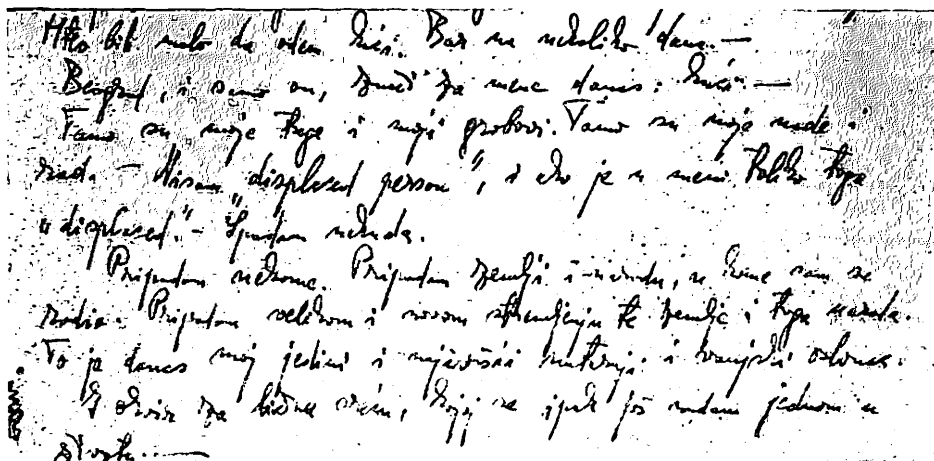 Htio bih malo da odem kući. Bar na nekoliko dana. —
Beograd, i samo on, znači za mene danas: kući. —
Tamo su moje tuge i moji grobovi. Tamo su moje nade i
rad. — Nisam „displased person", i ako je u meni toliko toga
„displased". — Spadam nekuda.
Pripadam nekome. Pripadam zemlji i narodu, u kome sam se
rodio. Pripadam velikom i novom stremljenju te zemlje i toga naroda.
To je danas moj jedini i najvišiji unutrnji i vanjski oslonac.
I okvir za kojoj se ipak još nadam jednom u